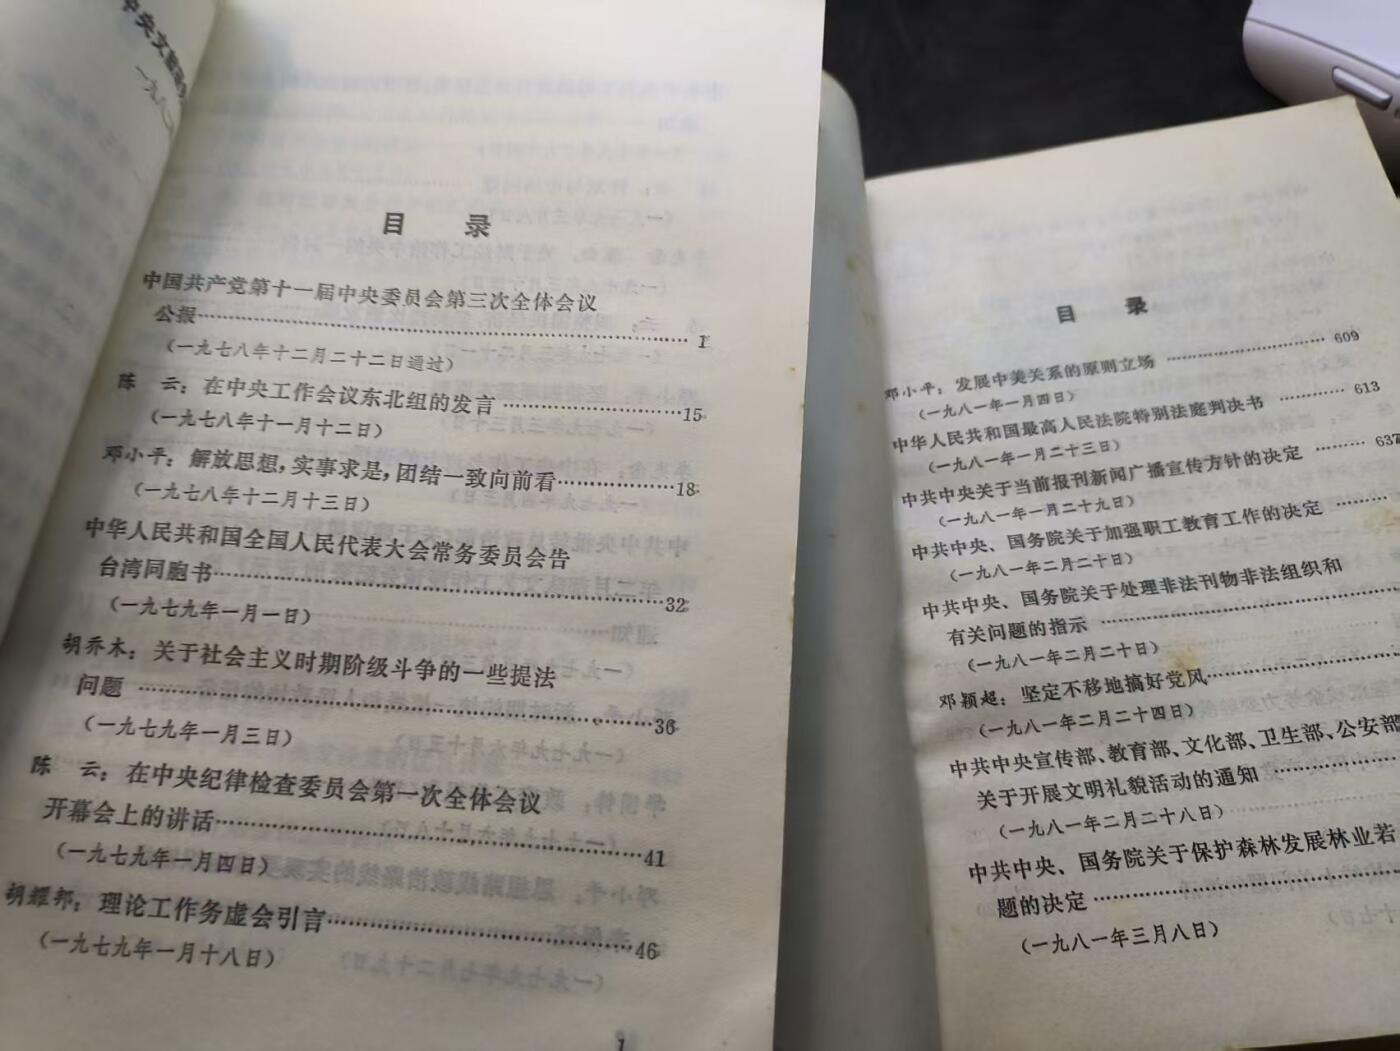 中央文献
一九八
目 录
中国共产党第十一届中央委员会第三次全体会议
公报……1
（一九七八年十二月二十二日通过）
陈 云：在中央工作会议东北组的发言……15
（一九七八年十一月十二日）
邓小平：解放思想，实事求是，团结一致向前看……18
（一九七八年十二月十三日）
中华人民共和国全国人民代表大会常务委员会告
台湾同胞书……32
（一九七九年一月一日）
胡乔木：关于社会主义时期阶级斗争的一些提法
问题……36
（一九七九年一月三日）
陈 云：在中央纪律检查委员会第一次全体会议
开幕会上的讲话……41
（一九七九年一月四日）
胡耀邦：理论工作务虚会引言……46
（一九七九年一月十八日）
1
目 录
邓小平：发展中美关系的原则立场……609
（一九八一年一月四日）
中华人民共和国最高人民法院特别法庭判决书……613
（一九八一年一月二十三日）
中共中央关于当前报刊新闻广播宣传方针的决定……637
（一九八一年一月二十九日）
中共中央、国务院关于加强职工教育工作的决定……
（一九八一年二月二十日）
中共中央、国务院关于处理非法刊物非法组织和
有关问题的指示……
（一九八一年二月二十日）
邓颖超：坚定不移地搞好党风……
（一九八一年二月二十四日）
中共中央宣传部、教育部、文化部、卫生部、公安部
关于开展文明礼貌活动的通知……
（一九八一年二月二十八日）
中共中央、国务院关于保护森林发展林业若
题的决定……
（一九八一年三月八日）